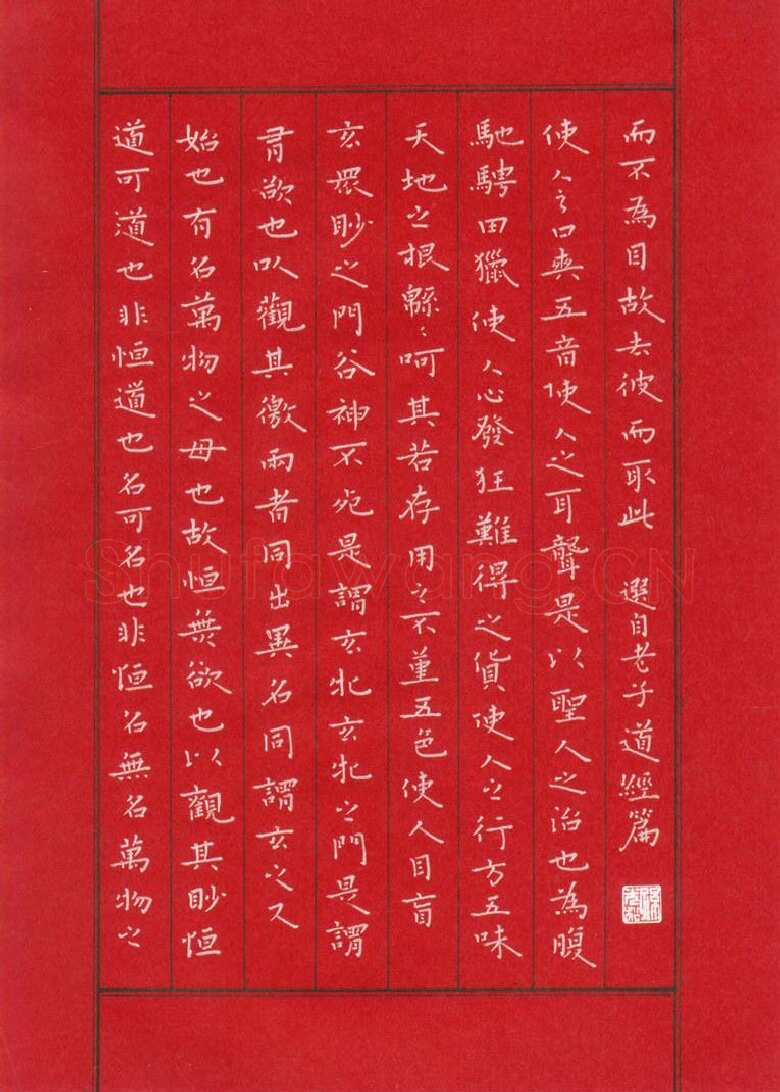 道可道也非恒道也名可名也非恒名無名萬物之
始也有名萬物之母也故恒無欲也以觀其眇恒
有欲也以觀其徼兩者同出異名同謂玄之又
玄眾眇之門谷神不死是謂玄牝玄牝之門是謂
天地之根緜〻呵其若存用之不堇五色使人目盲
馳騁田獵使人心發狂難得之貨使人之行方五味
使人之口爽五音使人之耳聾是以聖人之治也為腹
而不為目故去彼而取此 選自老子道經篇
Shufawang.CN